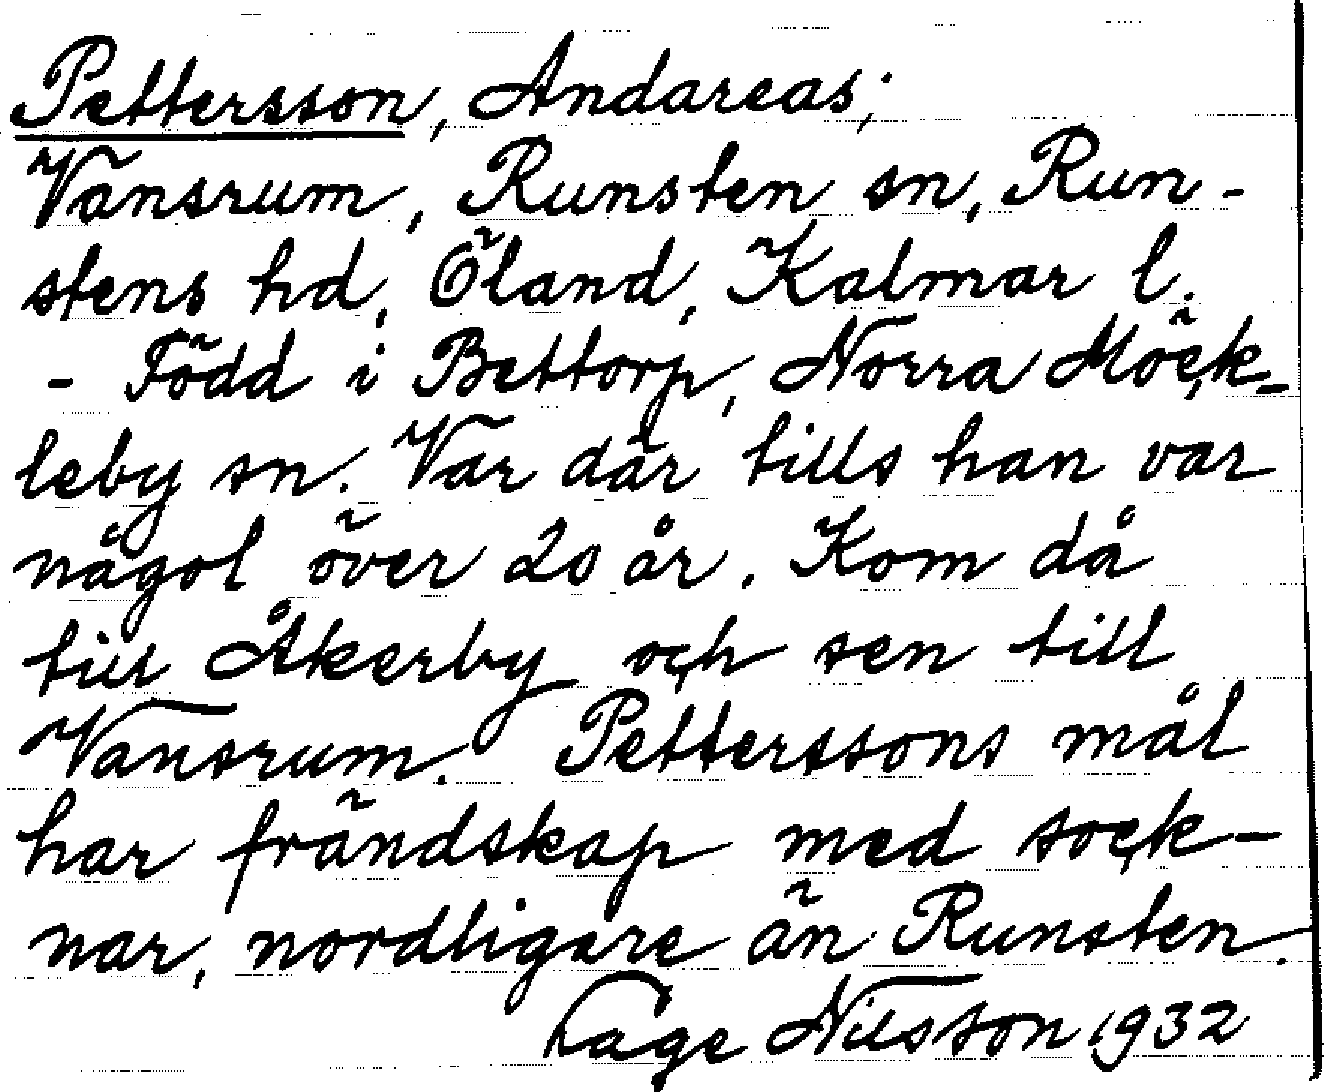 Pettersson, Andareas;
Vansrum, Runsten sn, Run-
stens hd, Öland, Kalmar l.
- Född i Bettorp, Norra Möck-
leby sn. Var där tills han var
något över 20 år. Kom då
till Åkerby och sen till
Vansrum. Petterssons mål
har frändskap med sock-
nar, nordligare än Runsten.
Lage Nilsson 1932